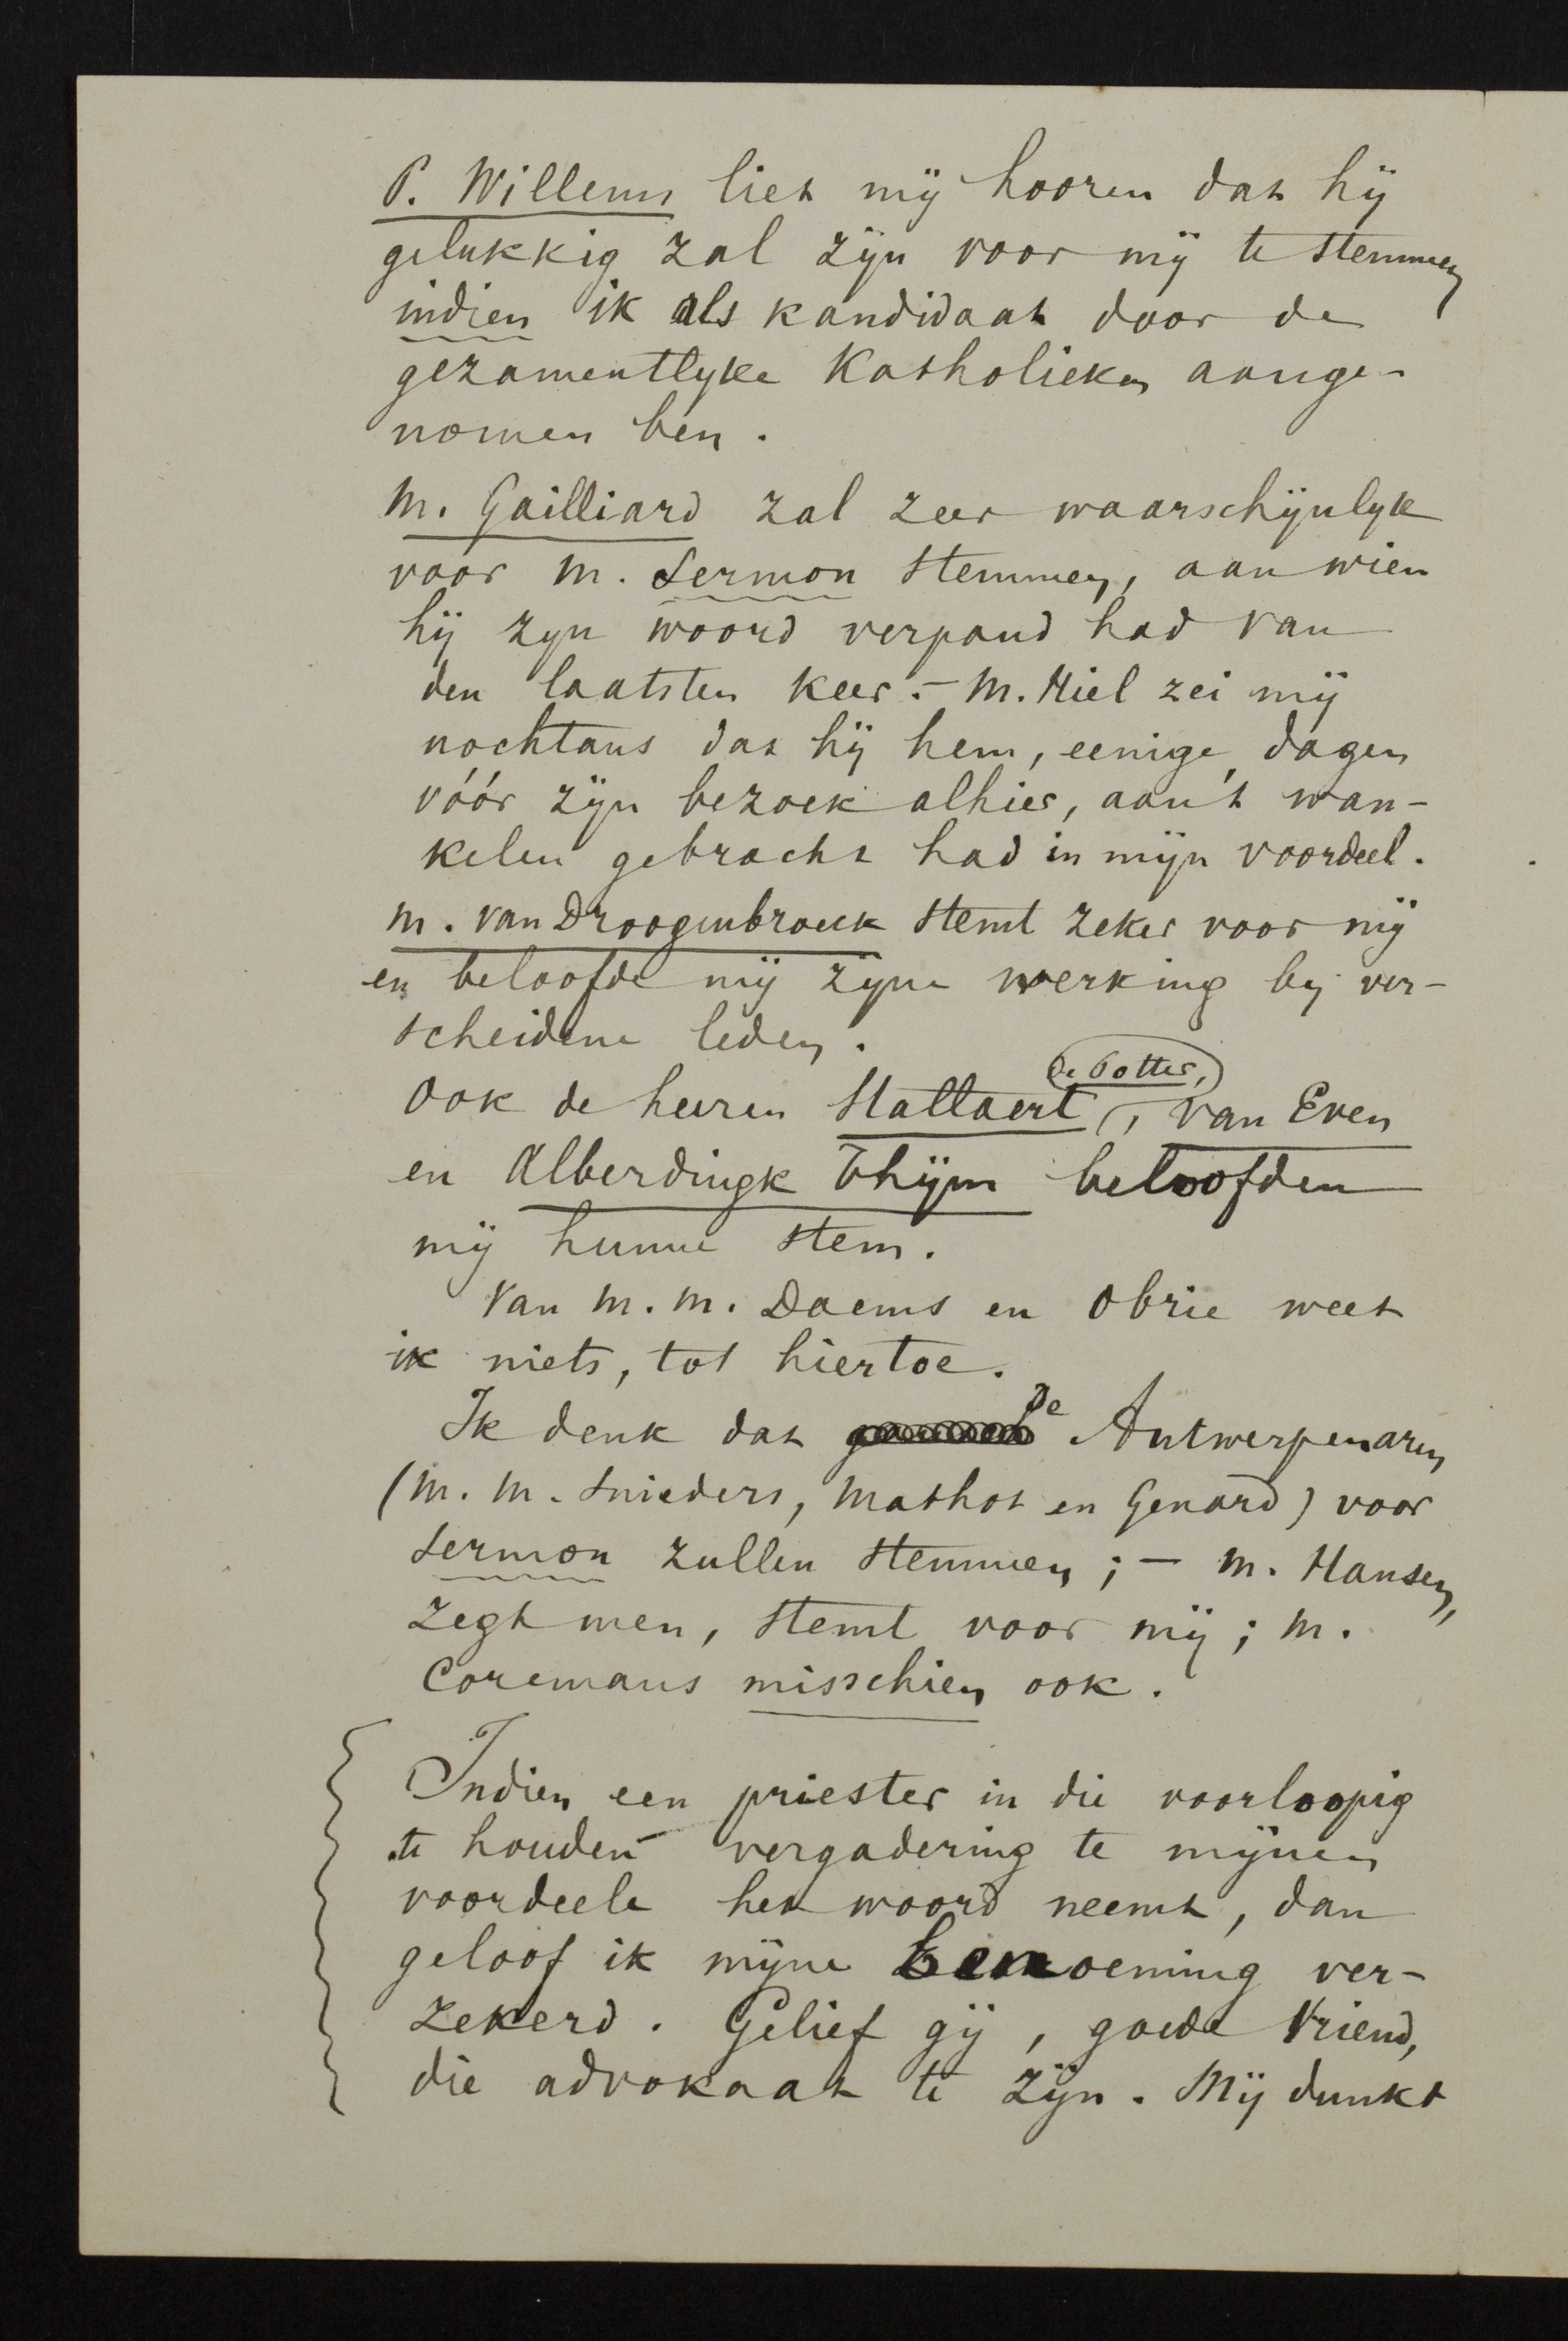 P. Willems liet mij hooren dat hij
gelukkig zal zijn voor mij te stemmen
indien ik als kandidaat door de
gezamentlyke Katholieken aange-
nomen ben.
M. Gailliard zal zeer waarschijnlyk
voor M. Sermon stemmen, aan wien
hij zyn woord verpand had van
den laatsten keer. - M. Hiel zei mij
nochtans dat hij hem, eenige dagen
vóór zijn bezoek alhier, aan 't wan-
kelen gebracht had in mijn voordeel.
M. van Droogenbroeck stemt zeker voor mij
en beloofde mij zijne werking by ver-
scheidene leden.
Ook de heeren Stallaert, de Potter, van Even
en Alberdingk Thijm beloofden
mij hunne stem.
Van M. M. Daems en Obrie weet
ik niets, tot hiertoe.
Ik denk dat de Antwerpenaren
(M. M. Snieders, Mathot en Genard) voor
Sermon zullen stemmen; - M. Hansen,
zegt men, stemt voor mij; M.
Coremans misschien ook.
Indien een priester in die voorloopig
te houden vergadering te mijnen
voordeele het woord neemt, dan
geloof ik mijne benoeming ver-
zekerd. Gelief gij, goede Vriend,
die advokaat te zijn. Mij dunkt